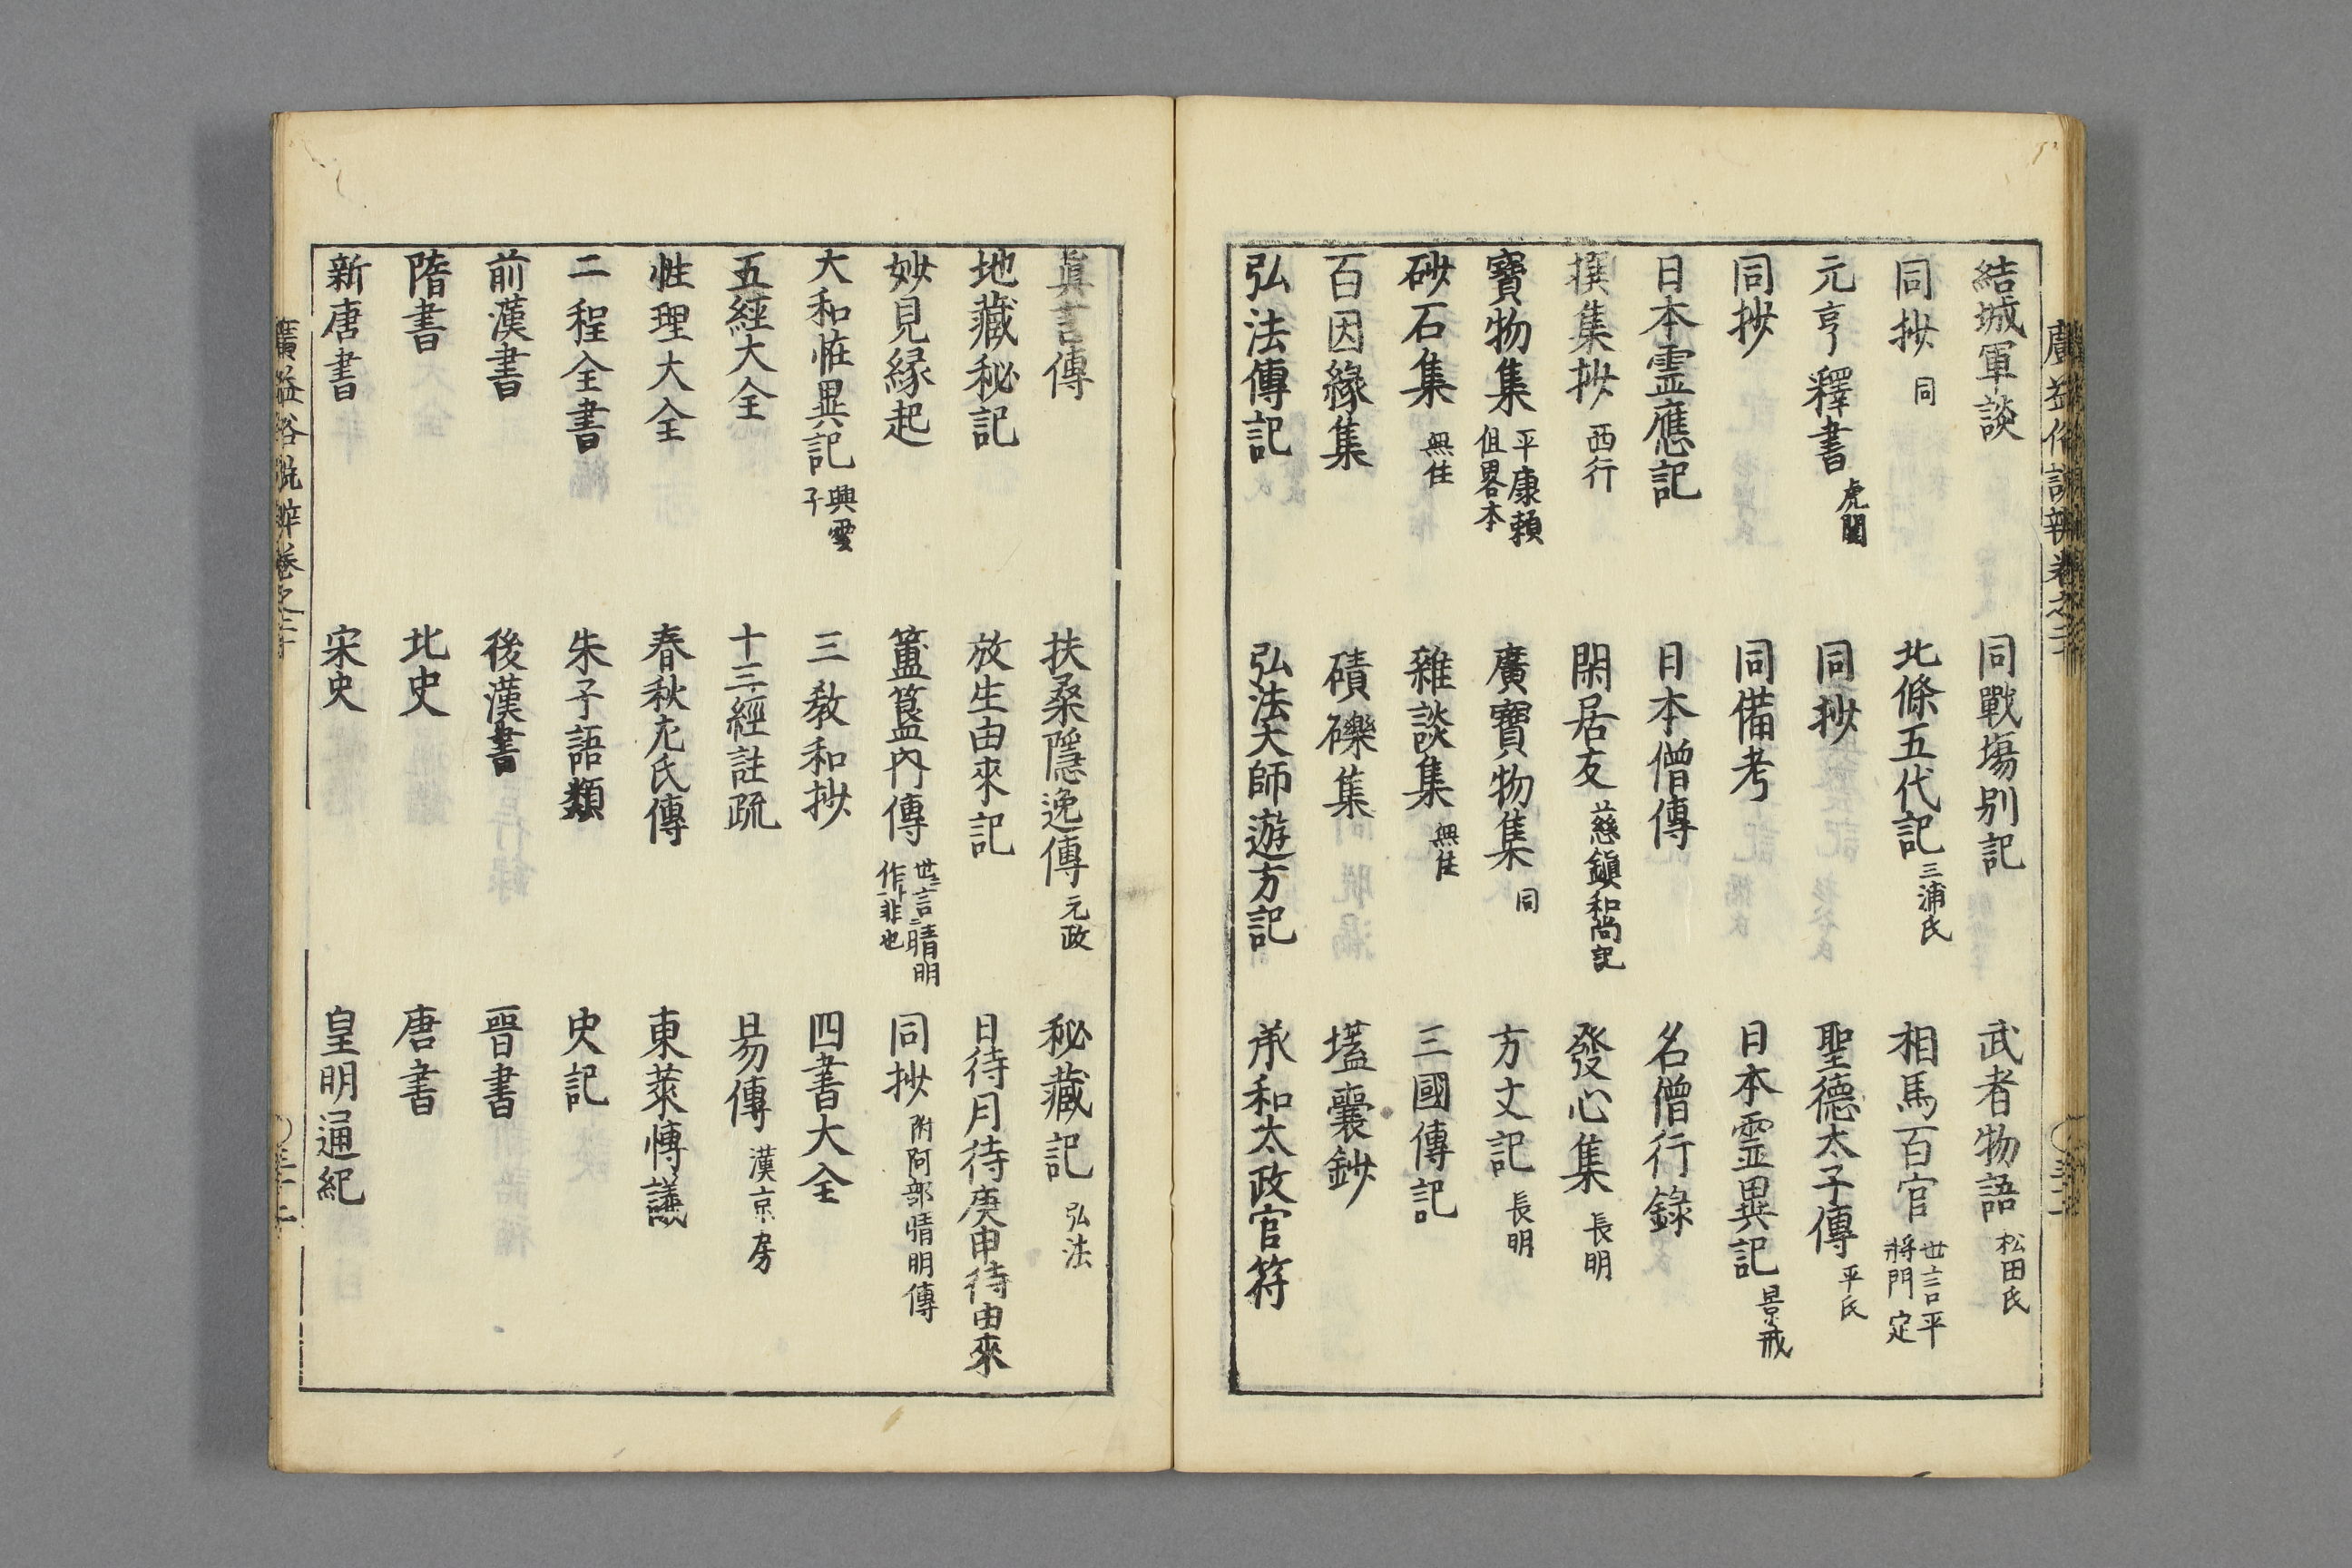 結城軍談　同戰場別記　武者物語 松田氏
同抄 同　北條五代記 三浦氏　相馬百官 世言平將門定
元亨釋書 虎關　同抄　聖德太子傳 平氏
同抄　同備考　日本霊異記 景戒
日本霊應記　日本僧傳　名僧行錄
撰集抄 西行　閑居友 慈鎭和尚記　發心集 長明
寶物集 平康賴但畧本　廣寶物集 同　方丈記 長明
砂石集 無住　雜談集 無住　三國傳記
百因緣集　磧礫集　壒囊鈔
弘法傳記　弘法大師遊方記　承和太政官符
眞言傳　扶桑隱逸傳 元政　秘藏記 弘法
地藏秘記　放生由來記　日待月待庚申待由來
妙見縁起　簠簋內傳 世言晴明作非也　同抄 附阿部晴明傳
大和怪異記 興雲子　三教和抄　四書大全
五經大全　十三經註疏　易傳 漢京房
性理大全　春秋左氏傳　東萊博議
二程全書　朱子語類　史記
前漢書　後漢書　晋書
隋書　北史　唐書
新唐書　宋史　皇明通紀